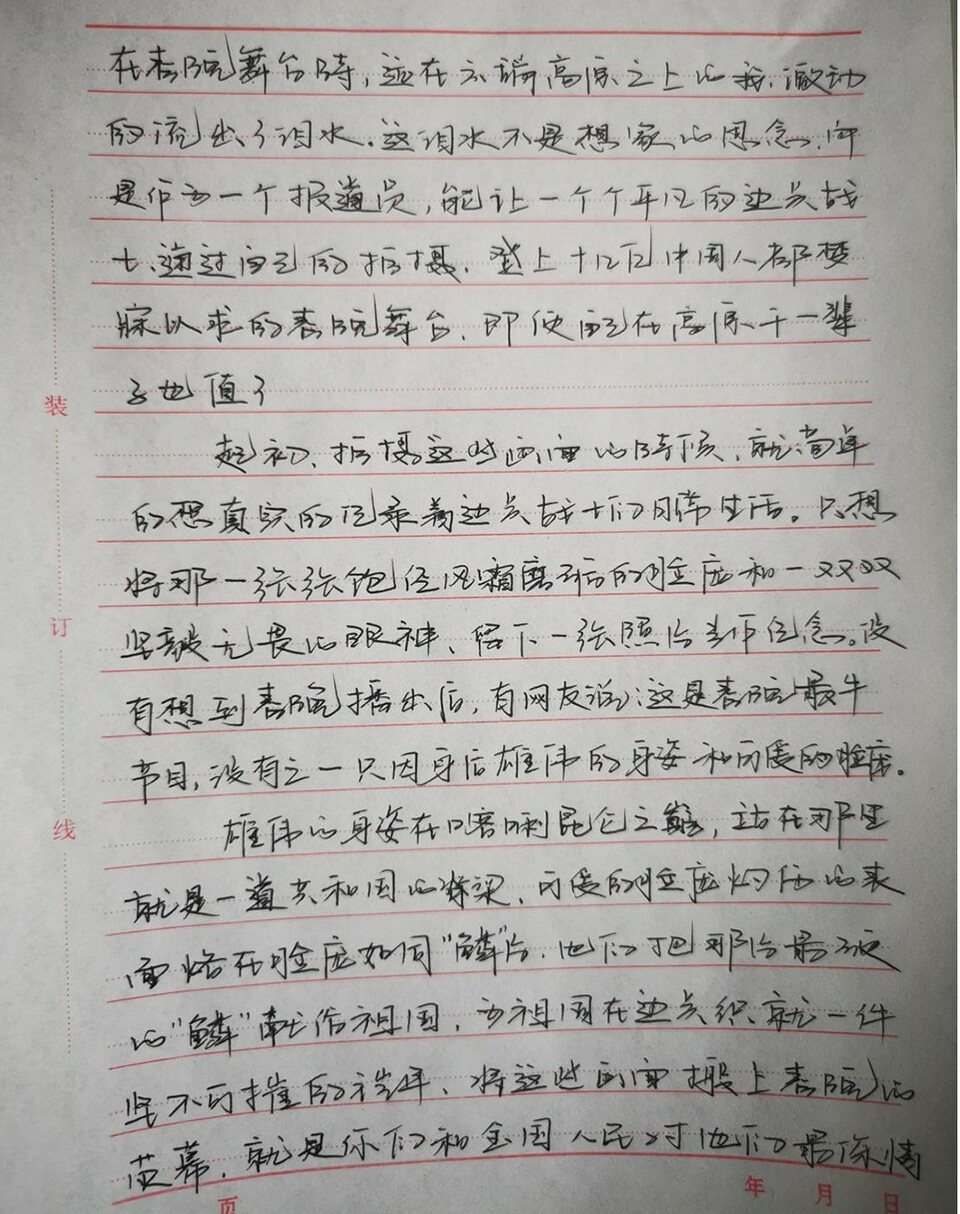 在春晚舞台时，远在云端高原之上的我，激动
的流出了泪水。这泪水不是想家的思念，而
是作为一个报道员，能让一个个平凡的边关战
士，通过自己的拍摄，登上十几亿中国人都梦
寐以求的春晚舞台，即使自己在高原干一辈
子也值了
起初，拍摄这些画面的时候，就简单
的想真实的记录着边关战士们日常生活。只想
将那一张张饱经风霜磨砺的脸庞和一双双
坚毅无畏的眼神，留下一张照片当作纪念。没
有想到春晚播出后，有网友说：这是春晚最牛
节目，没有之一只因身后雄伟的身姿和可爱的脸庞。
雄伟的身姿在喀喇昆仑之巅，站在那里
就是一道共和国的脊梁，可爱的脸庞灼伤的表
面烙在脸庞如同“鳞”片，他们把那片最硬
的“鳞”献给祖国，为祖国在边关织就一件
坚不可摧的 将这些画面搬上春晚的
荧幕，就是你们和全国人民对他们最深情
装
订
线
页 年 月 日